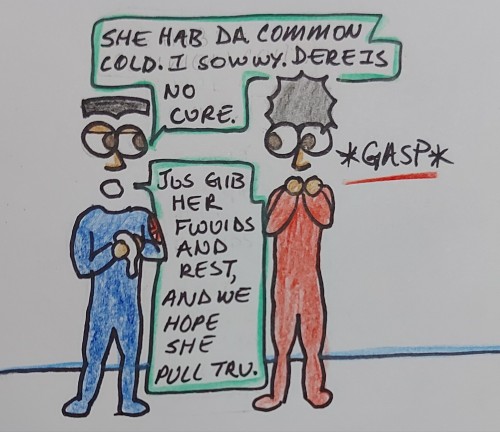 SHE HAB DA COMMON
COLD. I SOWWY. DERE IS
NO
CURE.
*GASP*
JUS GIB
HER
FWUIDS
AND
REST,
AND WE
HOPE
SHE
PULL TRU.